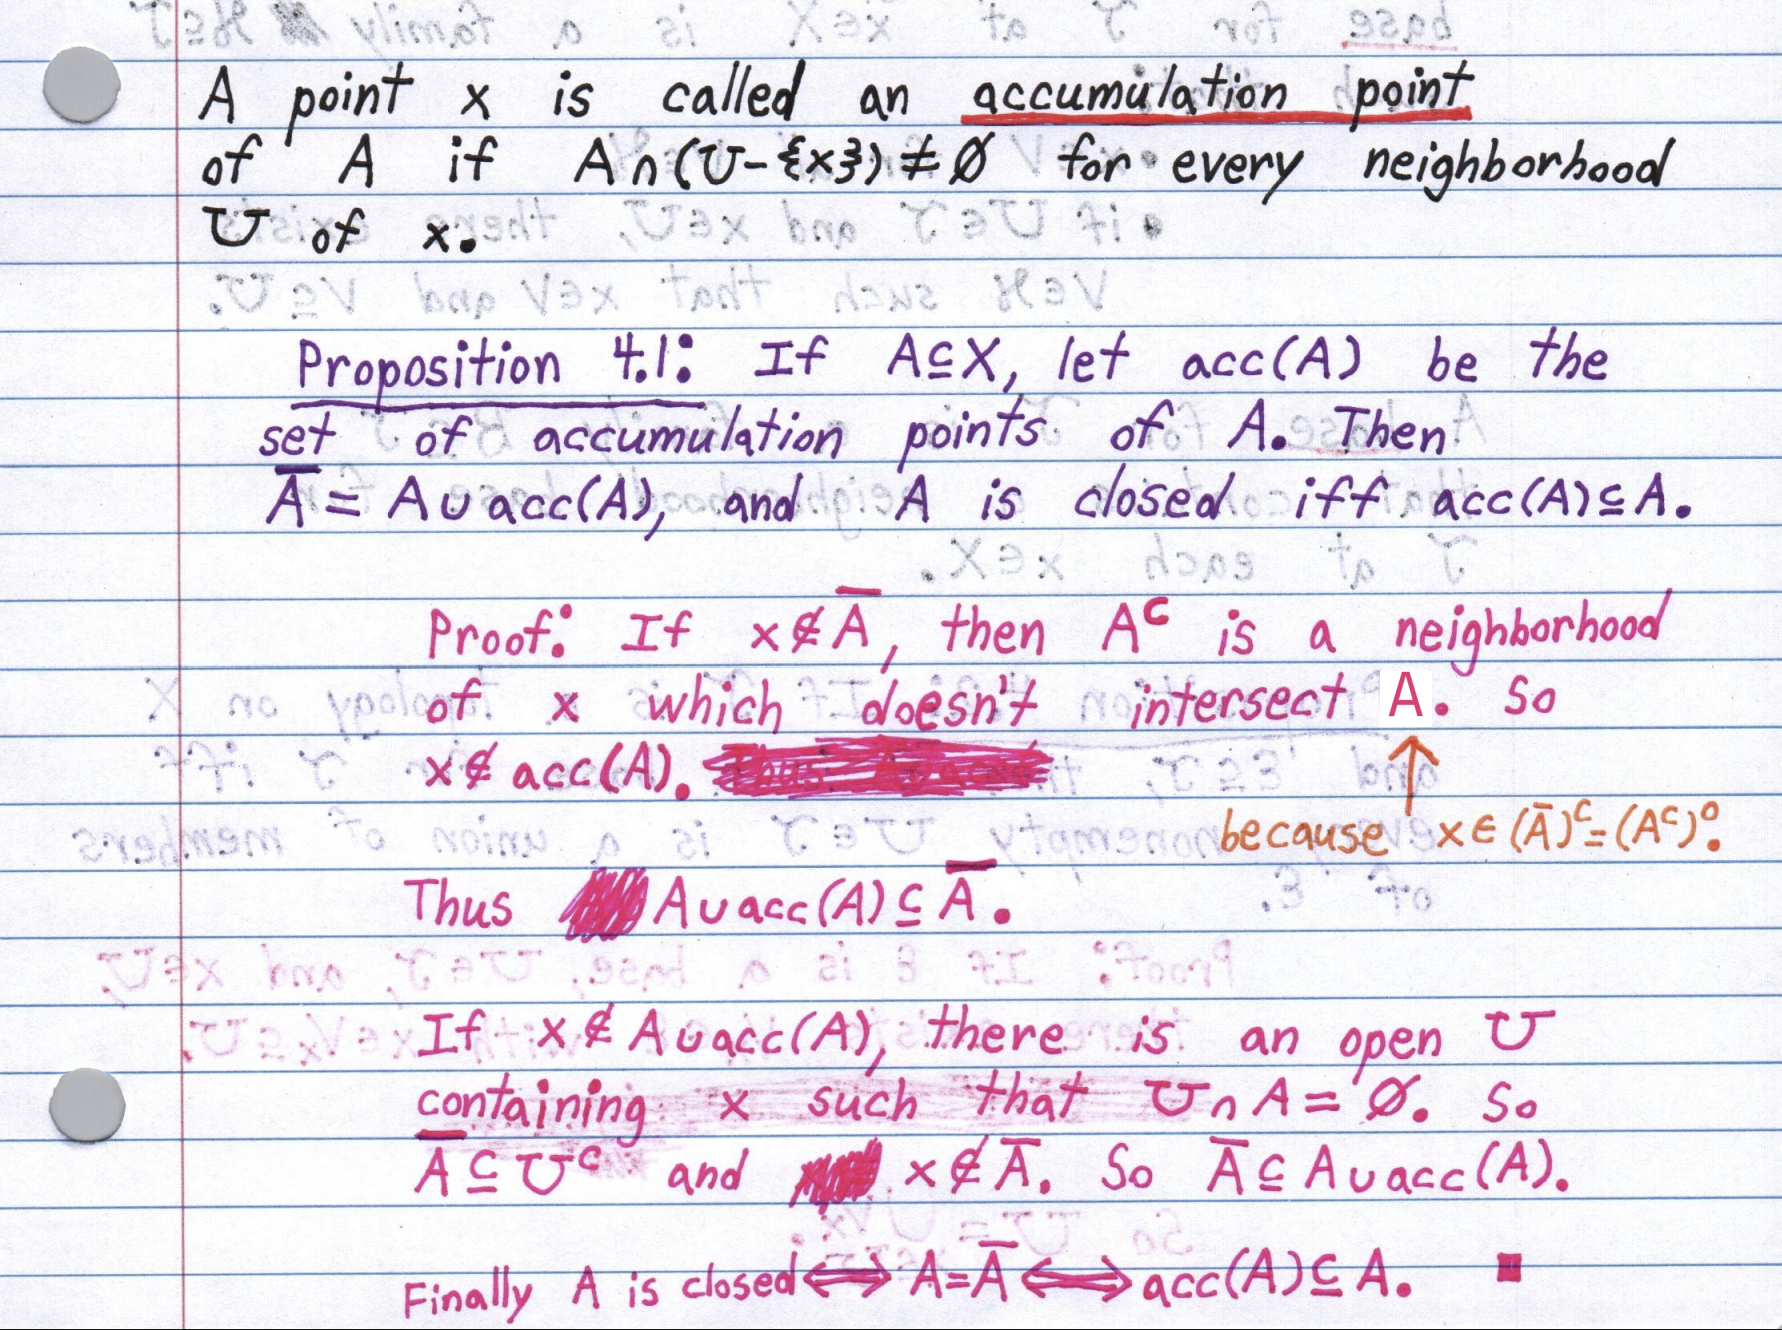 A point x is called an accumulation point
of A if A∩(U-{x})≠∅ for every neighborhood
U of x.
Proposition 4.1: If A⊆X, let acc(A) be the
set of accumulation points of A. Then
A̅ = A∪acc(A), and A is closed iff acc(A)⊆A.
Proof: If x∉A̅, then Aᶜ is a neighborhood
of x which doesn't intersect A. So
x∉acc(A).
because x∈(A̅)ᶜ=(Aᶜ)°.
Thus A∪acc(A)⊆A̅.
If x∉A∪acc(A), there is an open U
containing x such that U∩A=∅. So
A̅⊆Uᶜ and x∉A̅. So A̅⊆A∪acc(A).
Finally A is closed⟺A=A̅⟺acc(A)⊆A. ■